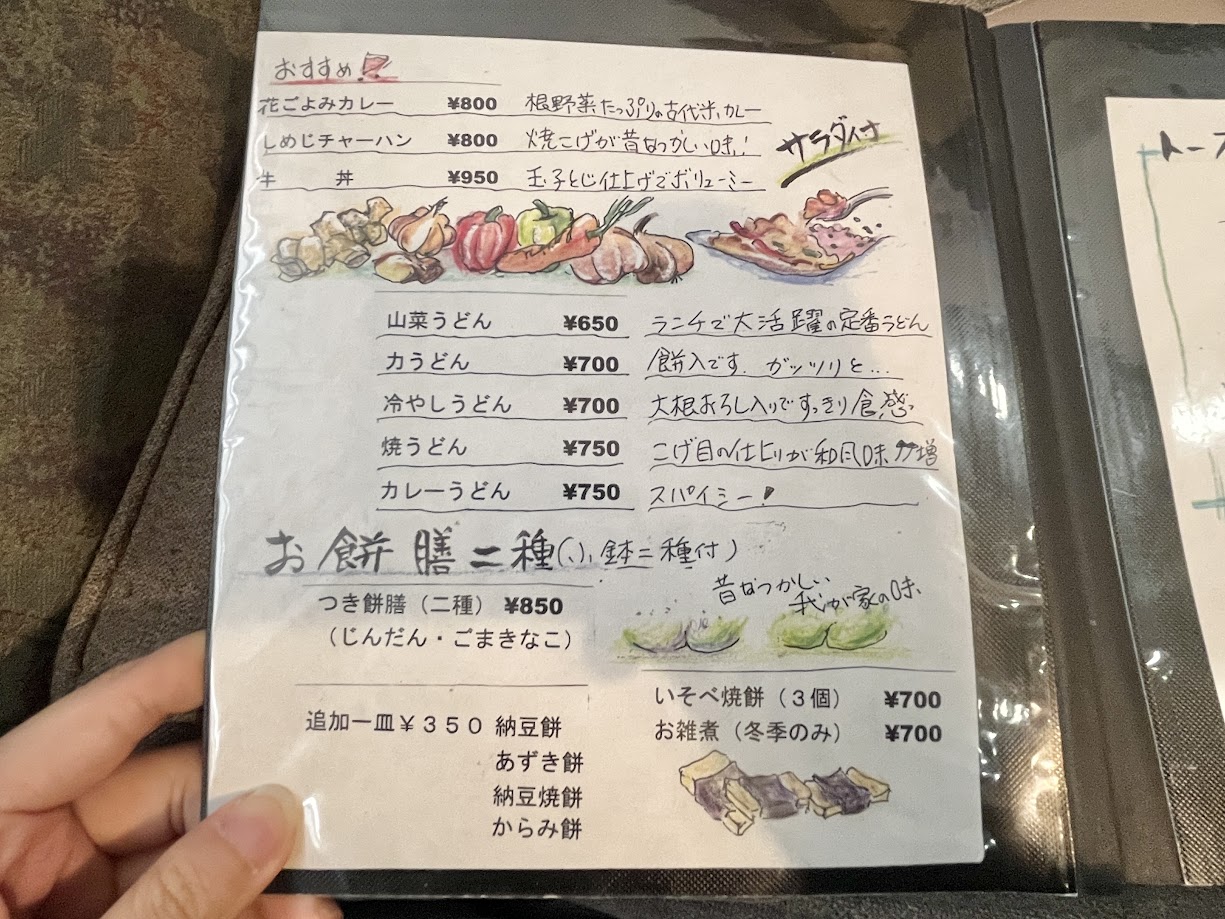 おすすめ!!
花ごよみカレー ¥800 根野菜たっぷりの古代米カレー
しめじチャーハン ¥800 焼こげが昔なつかしい味!
牛 丼 ¥950 玉子とじ仕上げでボリューミー
サラダ付
山菜うどん ¥650 ランチで大活躍の定番うどん
力うどん ¥700 餅入です。ガッツリと...
冷やしうどん ¥700 大根おろし入りですっきり食感
焼うどん ¥750 こげ目の仕上りが和風味倍増
カレーうどん ¥750 スパイシー!
お餅膳二種(小鉢二種付)
昔なつかしい
我が家の味
つき餅膳(二種) ¥850
(じんだん・ごまきなこ)
いそべ焼餅(3個) ¥700
お雑煮(冬季のみ) ¥700
追加一皿¥350 納豆餅
あずき餅
納豆焼餅
からみ餅